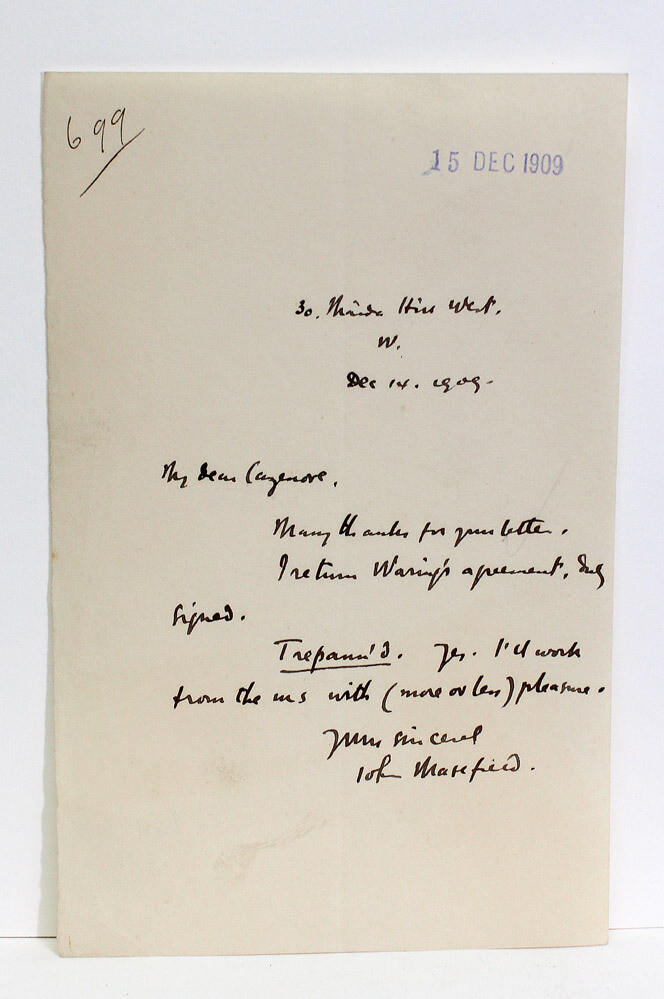 699
15 DEC 1909
30. Maida Hill West.
W.
Dec 14. 1909.
My dear Cazenove,
Many thanks for your letter.
I return Waring's agreement, duly
signed.
Trepann'd. Yes. I'll work
from the ms with (more or less) pleasure.
Yours sincerely
John Masefield.